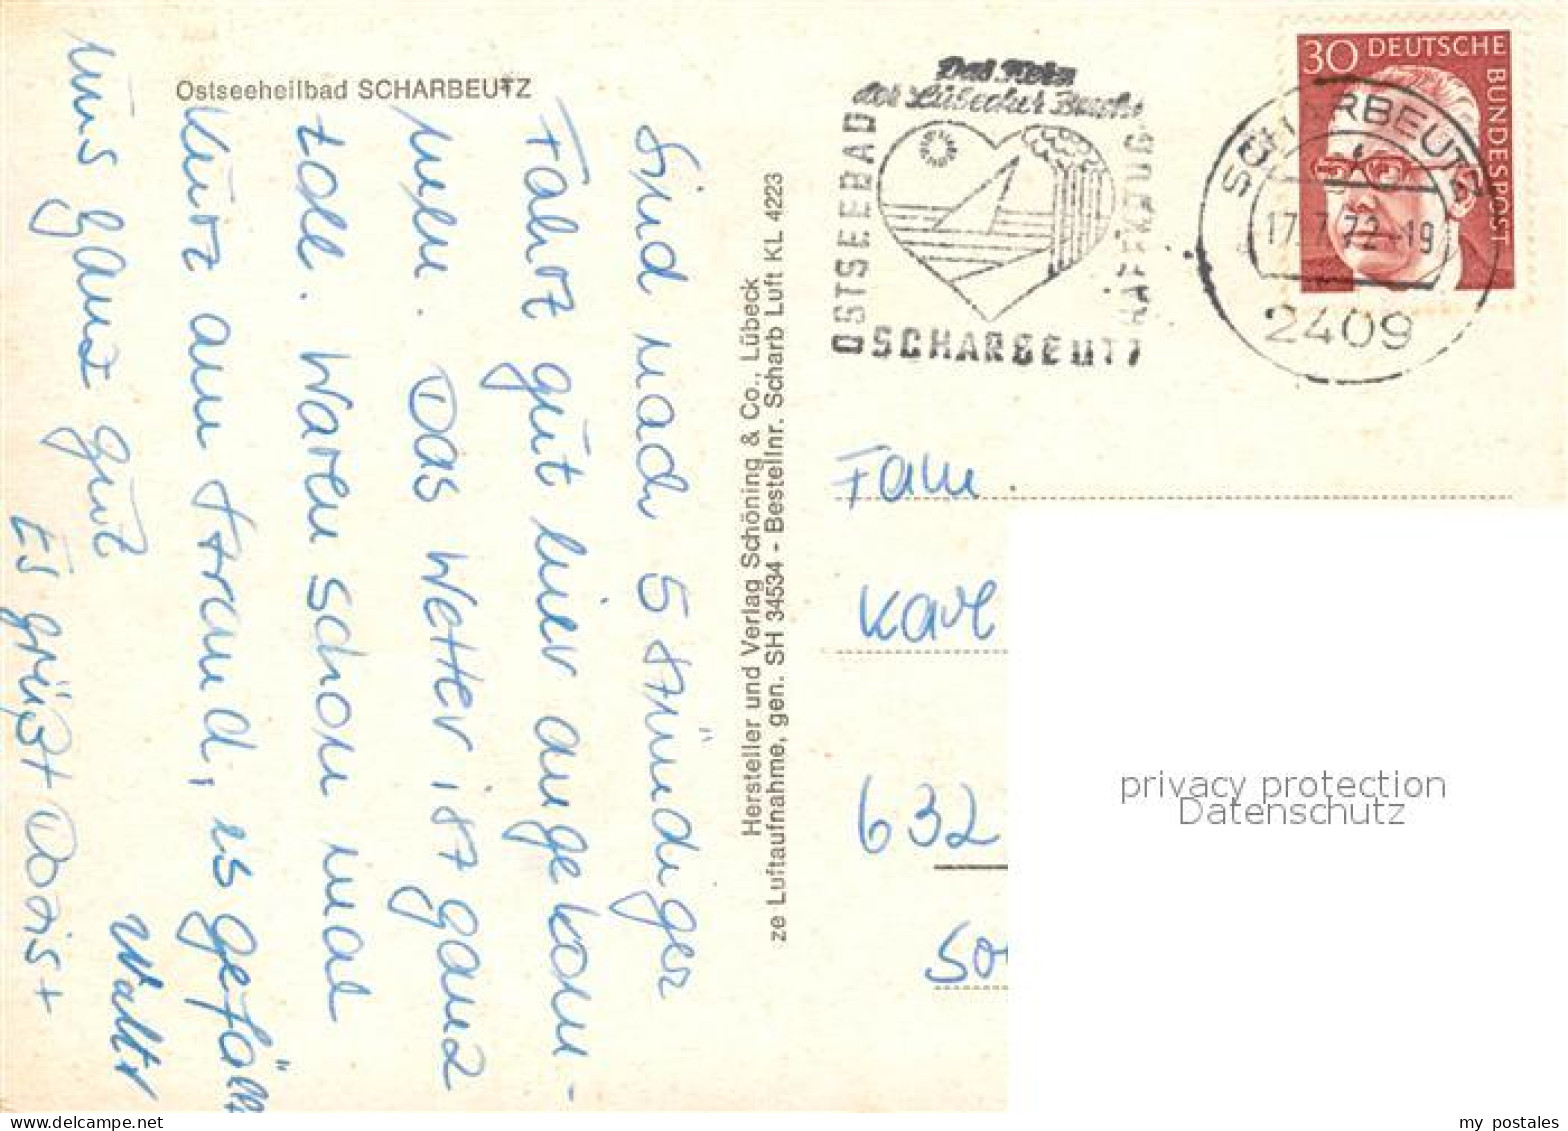 Ostseeheilbad SCHARBEUTZ
Sind nach 5 stündiger
Fahrt gut hier angekom-
men. Das Wetter ist ganz
toll. Waren schon mal
kurz am Strand, es gefällt
uns ganz gut
Es grüßt Doris +
Walter
Hersteller und Verlag Schöning & Co., Lübeck
ze Luftaufnahme, gen. SH 34534 - Bestellnr. Scharb Luft KL 4223
Das Herz
der Lübecker Bucht
OSTSEEBAD
SCHARBEUTZ
HAFFKRUG
SCHARBEUTZ
17.7.72-19
2409
30 DEUTSCHE
BUNDESPOST
Fam.
Karl
632
So
privacy protection
Datenschutz
my postales